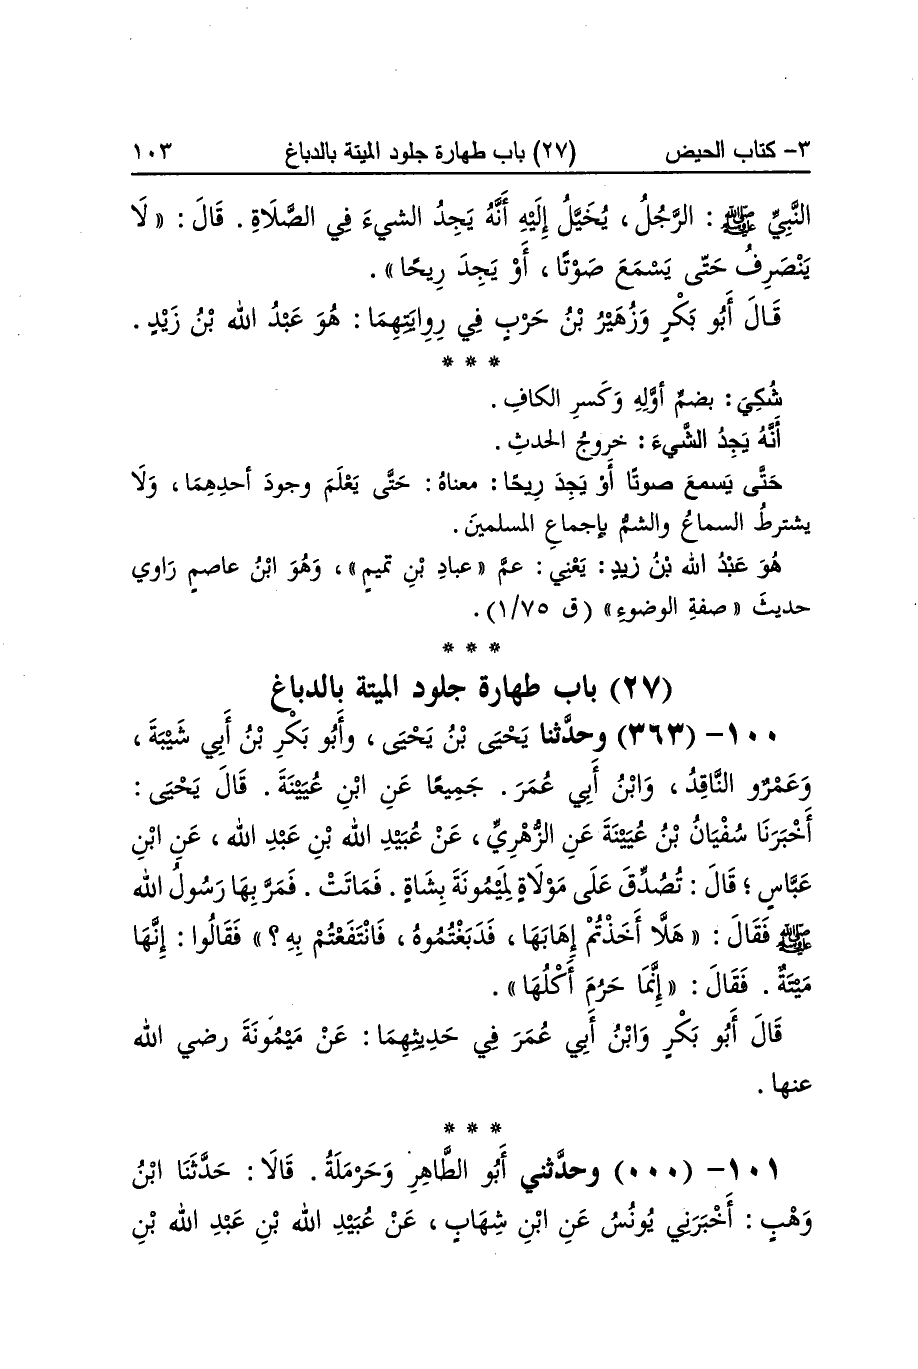 ٣- كتاب الحيض (٢٧) باب طهارة جلود الميتة بالدباغ ١٠٣
النَّبِيِّ ﷺ : الرَّجُلُ ، يُخَيَّلُ إِلَيْهِ أَنَّهُ يَجِدُ الشيءَ فِي الصَّلَاةِ . قَالَ : « لَا
يَنْصَرِفُ حَتَّى يَسْمَعَ صَوْتًا ، أَوْ يَجِدَ رِيحًا » .
قَالَ أَبُو بَكْرٍ وَزُهَيْرُ بْنُ حَرْبٍ فِي رِوايَتِهِمَا : هُوَ عَبْدُ الله بْنُ زَيْدٍ .
* * *
شُكِيَ : بضمِّ أوَّلِهِ وَكَسرِ الكافِ .
أَنَّهُ يَجِدُ الشَّيءَ : خروجُ الحدثِ .
حَتَّى يَسمعَ صوتًا أَوْ يَجِدَ رِيحًا : معناهُ : حَتَّى يَعْلَمَ وجودَ أحدِهِمَا ، وَلَا
يشترطُ السماعُ والشمُّ بإجماعِ المسلمينَ .
هُوَ عَبْدُ الله بْنُ زيدٍ : يَعْنِي : عمَّ « عبادِ بْنِ تميمٍ » ، وَهُوَ ابْنُ عاصمٍ رَاوي
حديثَ « صفةِ الوضوءِ » (ق ١/٧٥) .
* * *
(٢٧) باب طهارة جلود الميتة بالدباغ
١٠٠- (٣٦٣) وحدَّثنا يَحْيَى بْنُ يَحْيَى ، وأَبُو بَكْرِ بْنُ أَبِي شَيْبَةَ ،
وَعَمْرٌو النَّاقِدُ ، وَابْنُ أَبِي عُمَرَ . جَمِيعًا عَنِ ابْنِ عُيَيْنَةَ . قَالَ يَحْيَى :
أَخْبَرَنَا سُفْيَانُ بْنُ عُيَيْنَةَ عَنِ الزُّهْرِيِّ ، عَنْ عُبَيْدِ الله بْنِ عَبْدِ الله ، عَنِ ابْنِ
عَبَّاسٍ ؛ قَالَ : تُصُدِّقَ عَلَى مَوْلَاةٍ لِمَيْمُونَةَ بِشَاةٍ . فَمَاتَتْ . فَمَرَّ بِهَا رَسُولُ الله
ﷺ فَقَالَ : « هَلَّا أَخَذْتُمْ إِهَابَهَا ، فَدَبَغْتُمُوهُ ، فَانْتَفَعْتُمْ بِهِ ؟ » فَقَالُوا : إِنَّهَا
مَيْتَةٌ . فَقَالَ : « إِنَّمَا حَرُمَ أَكْلُهَا » .
قَالَ أَبُو بَكْرٍ وَابْنُ أَبِي عُمَرَ فِي حَدِيثِهِمَا : عَنْ مَيْمُونَةَ رضي الله
عنها .
* * *
١٠١- (٠٠٠) وحدَّثني أَبُو الطَّاهِرِ وَحَرْمَلَةُ . قَالَا : حَدَّثَنَا ابْنُ
وَهْبٍ : أَخْبَرَنِي يُونُسُ عَنِ ابْنِ شِهَابٍ ، عَنْ عُبَيْدِ الله بْنِ عَبْدِ الله بْنِ